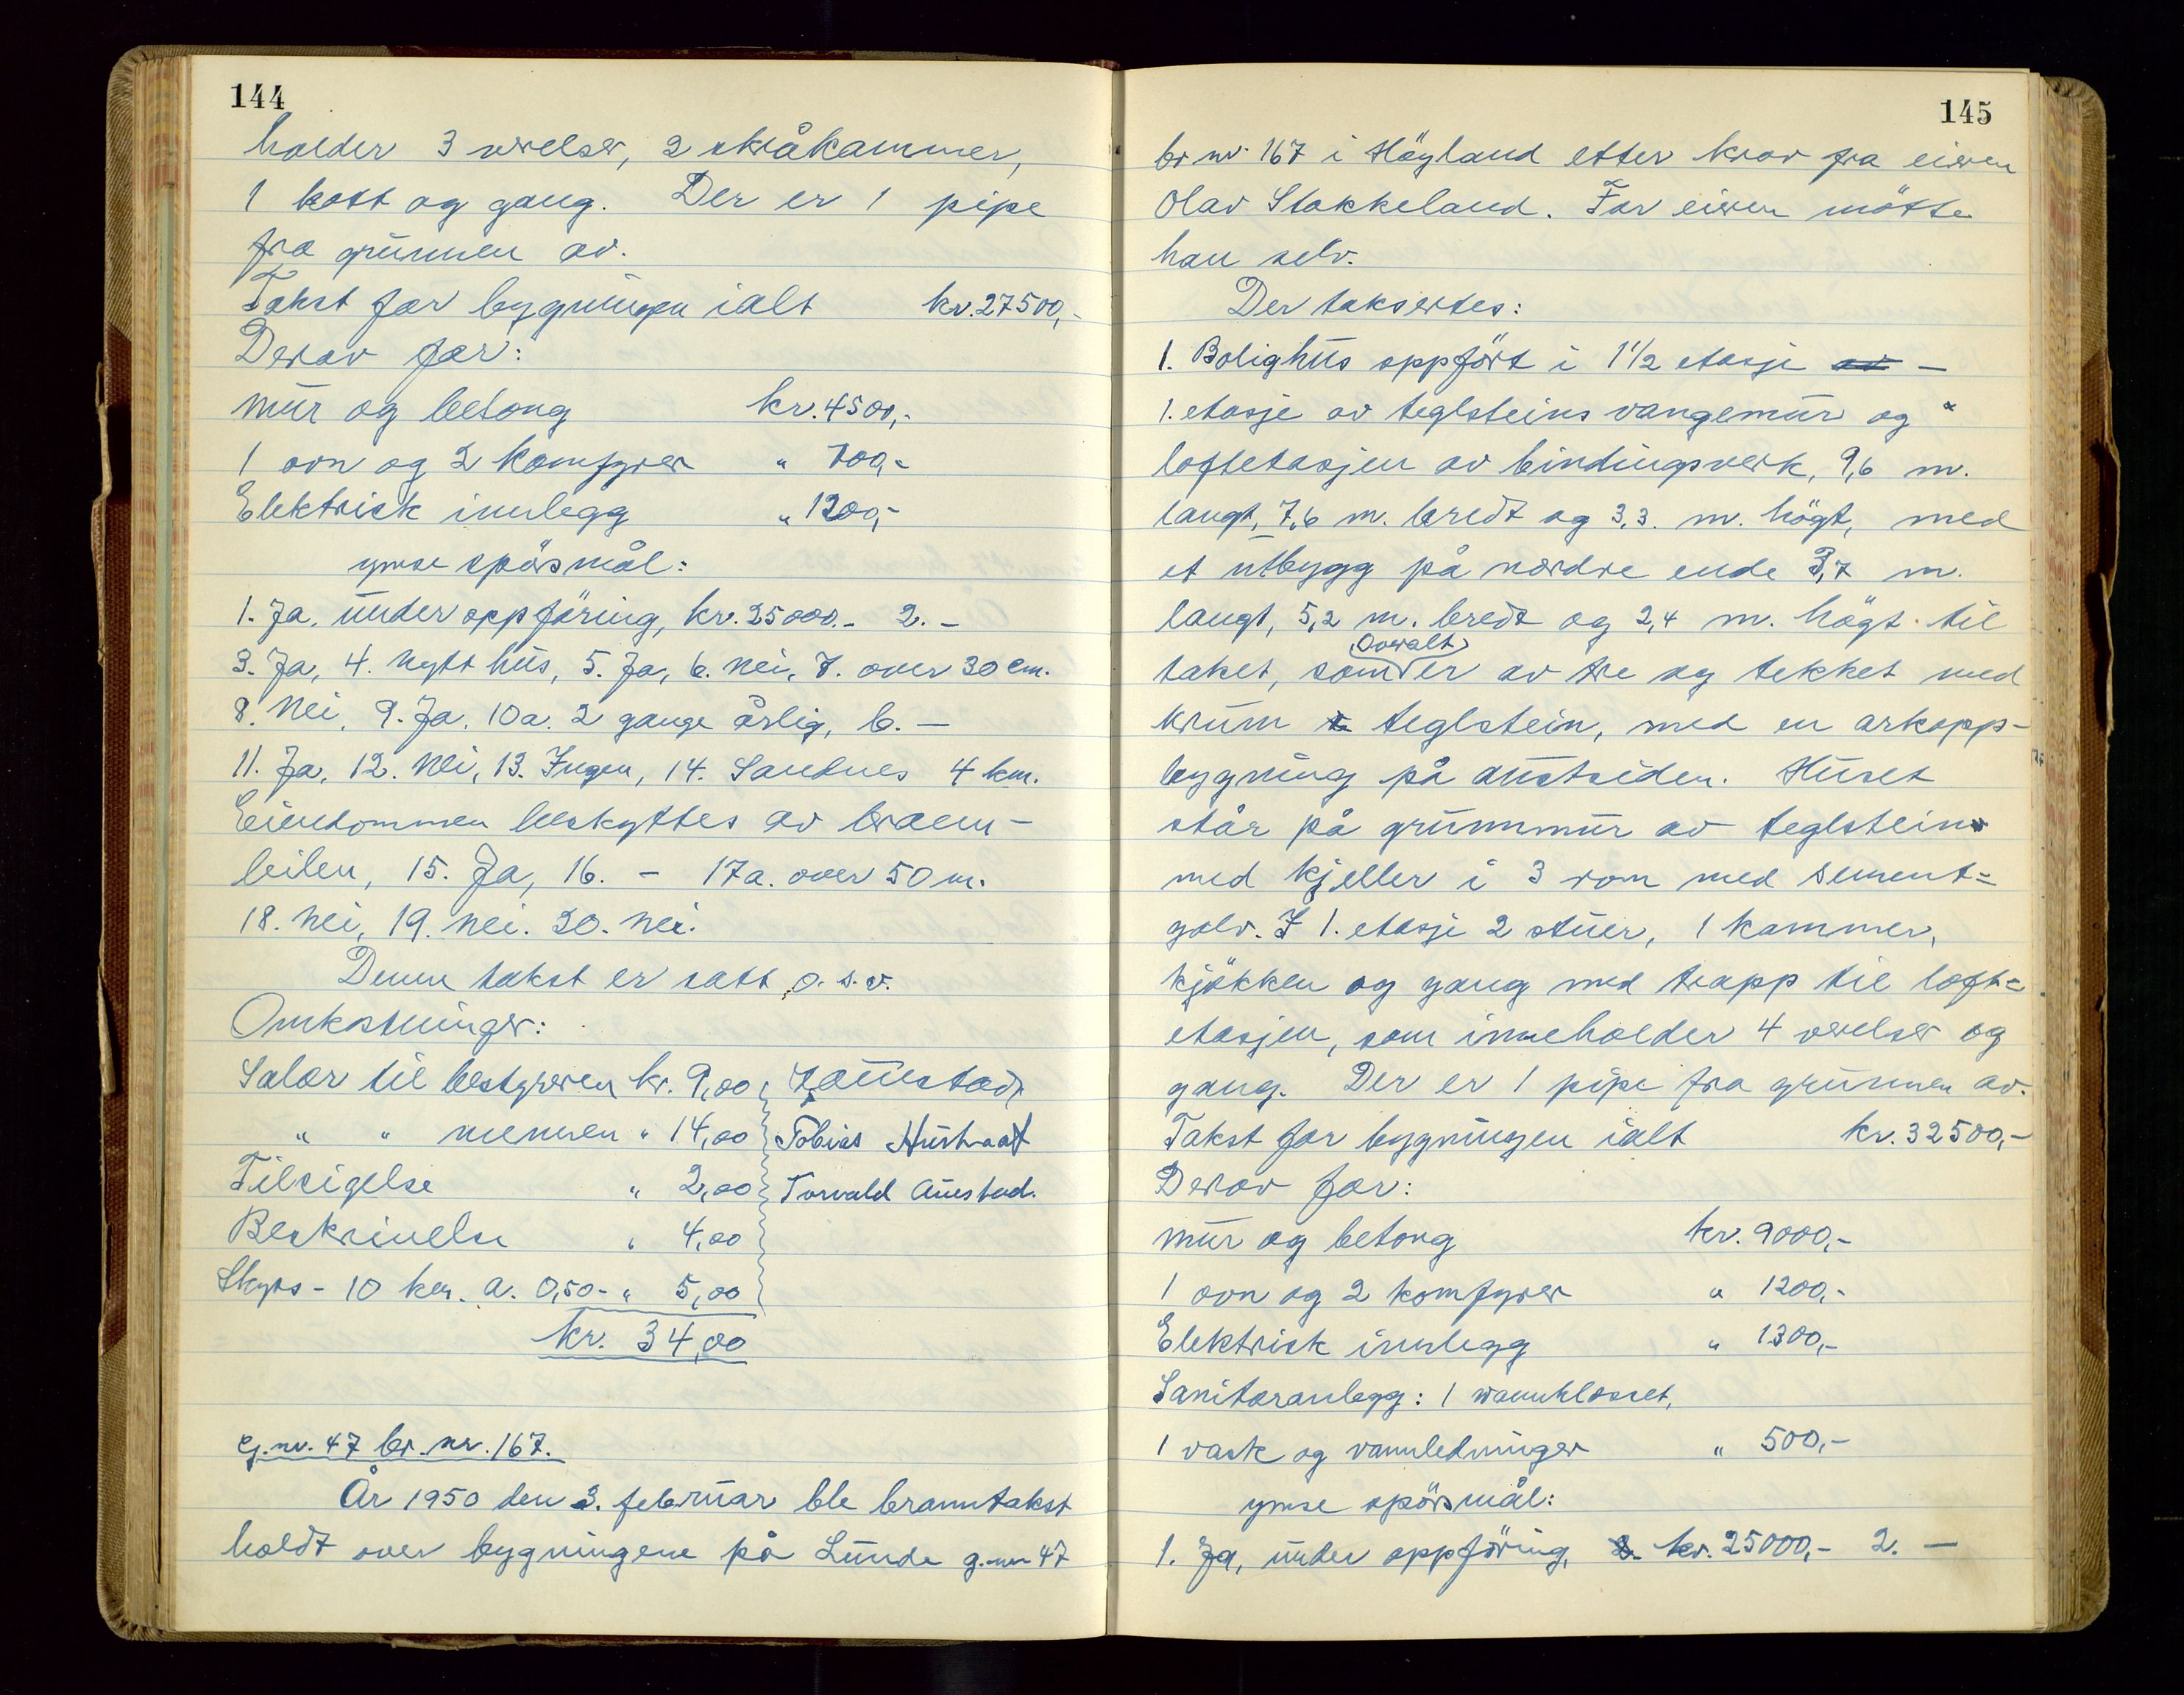 144
holder 3 værelser, 2 skråkammer,
1 kott og gang. Der er 1 pipe
fra grunnen av.
Takst for bygningen ialt kr. 27500,-
Derav for:
mur og betong kr. 4500,-
1 ovn og 2 komfyrer " 700,-
Elektrisk innlegg " 1200,-
ymse spörsmål:
1. Ja, under oppföring, kr. 25000.- 2. -
3. Ja, 4. Nytt hus, 5. Ja, 6. Nei, 7. over 30 cm.
8. Nei, 9. Ja, 10a. 2 gange årlig, b. -
11. Ja, 12. Nei, 13. Ingen, 14. Sandnes 4 km.
Eiendommen beskyttes av brann-
bilen, 15. Ja, 16. - 17a. over 50 m.
18. Nei, 19. Nei. 20. Nei.
Denne takst er satt o.s.v.
Omkostninger:
Salær til bestyreren kr. 9,00
" " mennen " 14,00 Tobias Hustvedt
Tilsigelse " 2,00 Torvald Auestad.
Beskrivelse " 4,00
Skyss - 10 km. a. 0,50 - " 5,00
kr. 34,00
G.nr. 47 br. nr. 167.
År 1950 den 3. februar ble branntakst
holdt over bygningene på Lunde g.nr 47
145
br nr. 167 i Höyland etter krav fra eieren
Olav Stokkeland. For eieren mötte
han selv.
Der taksertes:
1. Bolighus oppfört i 1 1/2 etasje av -
1. etasje av teglsteins vangemur og
loftetasjen av bindingsverk, 9,6 m.
langt, 7,6 m. bredt og 3,3. m. högt, med
et utbygg på nordre ende 3,7 m.
langt, 5,2 m. bredt og 2,4 m. högt til
taket, som overalt er av tre og tekket med
krum teglstein, med en arkopp-
bygning på austsiden. Huset
står på grunnmur av teglstein
med kjeller i 3 rom med sement-
golv. I 1. etasje 2 stuer, 1 kammer,
kjökken og gang med trapp til loft-
etasjen, som inneholder 4 værelser og
gang. Der er 1 pipe fra grunnen av.
Takst for bygningen ialt kr. 32500,-
Derav for:
mur og betong kr. 9000,-
1 ovn og 2 komfyrer " 1200,-
Elektrisk innlegg " 1300,-
Sanitæranlegg: 1 vannklosset,
1 vask og vannledninger " 500,-
ymse spörsmål:
1. Ja, under oppföring, 2. kr. 25000,- 2. -